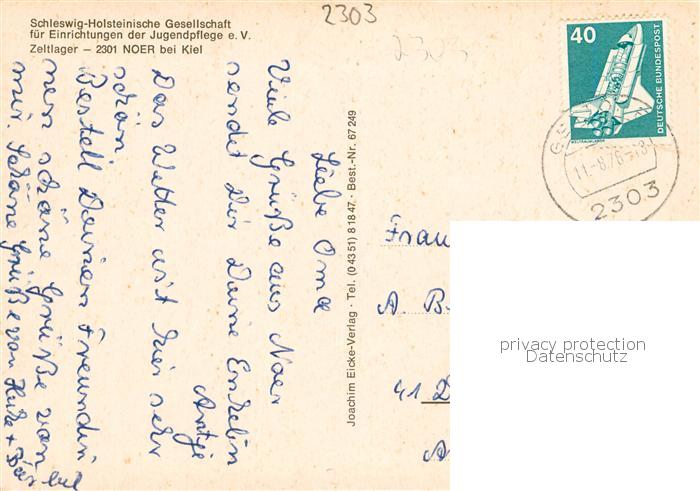 Schleswig-Holsteinische Gesellschaft
für Einrichtungen der Jugendpflege e. V.
Zeltlager – 2301 NOER bei Kiel
2303
2303
40
DEUTSCHE BUNDESPOST
WELTRAUMLABOR
11-8.76-18
2303
Liebe Oma
Viele Grüße aus Noer
sendet Dir Deine Enkelin
Antje
Das Wetter ist hier sehr
schön
Bestell Deinen Freundin
nen schöne Grüße von
mir. Schöne Grüße von
Joachim Eicke-Verlag · Tel. (0 43 51) 8 18 47 · Best.-Nr. 67 249
Frau
A. B
41 D
A
privacy protection
Datenschutz